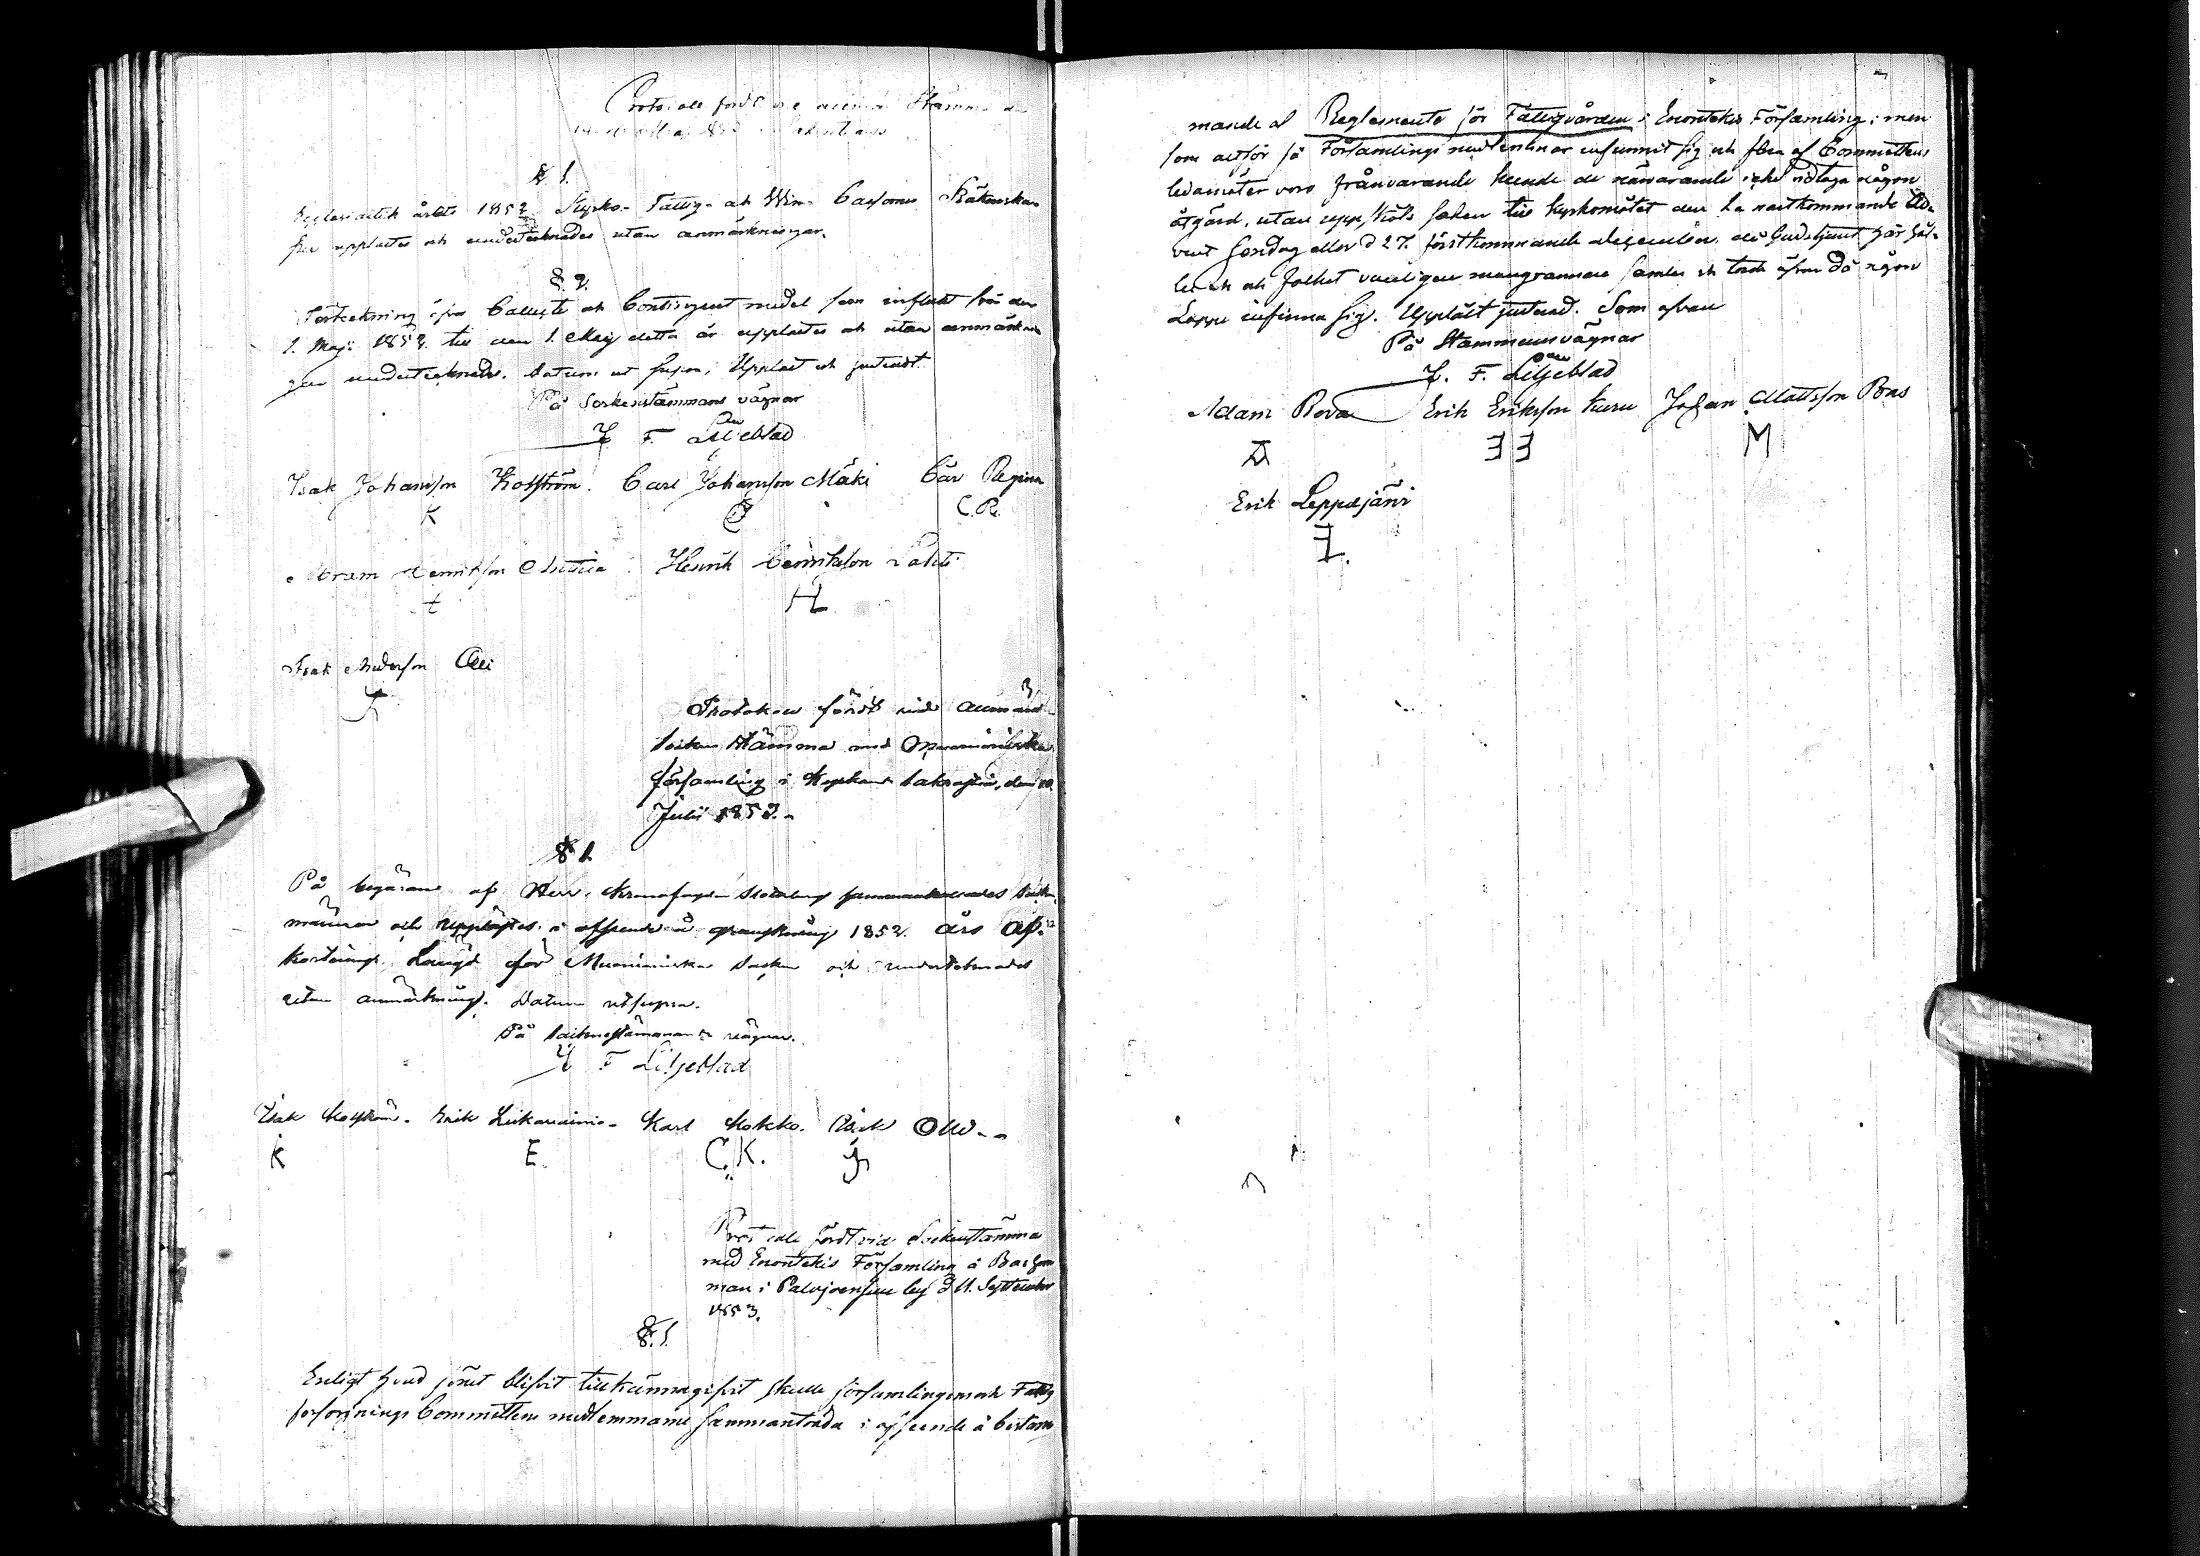 Protocoll fördt vid allmän Stämma
§ 1.
Ecclesiastik årets 1852 Kyrko- Fattig- och Win- Cassornes Räkenska-
per upplästes och undertecknades utan anmärkningar.
§. 2.
Förteckning öfver Collecte och Contingent medel som influtit från den
1. Maji 1852 till den 1. Maij detta år upplästes och utan anmärknin-
gar undertecknades. Datum ut supra; Uppläst och justeradt.
På Sockenstämmans vägnar
J. F. Liljeblad
Isak Johansson Kolström. Carl Johansson Mäki Car Regina
K C C. R.
Abram Henriksson Henrik Henriksson Lahti
t H
Isak Andersson Olli
Protokoll fördt vid allmän
Socken Stämma med Muonioniska
församling i Kyrkans Sakristia, den 10
Julii 1853.
§ 1.
På begäran af Herr Kronofogden sammankallades Socken
männen och upplästes i afseende å granskning 1852 års Af-
kortnings Längd för Muonioniska Socken och undertecknades
utan anmärkning. Datum utsupra.
På Sockenstämmans vägnar.
J. F. Liljeblad
Isak Kolström. Erik Liikavainio. Karl Kokko. Isak Olli.
K E. C. K. J
Protocoll fördt vid Sockenstämma
med Enontekis Församling å Backman
man i Palojoensuu by d 11. September
1853.
§. 1.
Enligt hvad förut blifvit tillkännagifvit skulle församlingens och Fattig
forsörjnings Committeens medlemmarne sammanträda i afseende å bestäm
mande af Reglemente för Fattigvården i Enontekis Församling; men
som altför få Församlings medlemmar infunnit sig och flera af Committeens
ledamöter voro frånvarande kunde de närvarande icke vidtaga någon
åtgärd, utan uppsköts saken till kyrkomötet den 1a nästkommande Ad-
vent Söndag eller d 27. förstkommande då Gudstjenst här hål-
les och folket vanligen mangrannare samlas och torde äfven då någon
Lapp infinna sig. Uppläst justerad. Som ofvan
På Stämmans vägnar
J. F. Liljeblad
Adam Rova Erik Eriksson Kuru Johan Mattsson Pous
A E E M
Erik Leppäjärvi
E L.